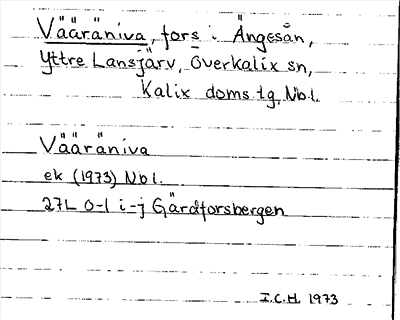 Vääräniva, fors i Ängesån,
Yttre Lansjärv, Överkalix sn,
Kalix doms.tg, Nbl.
Vääräniva
ek (1973) Nbl.
27L 0-1 i-j Gärdforsbergen
I.C.H. 1973